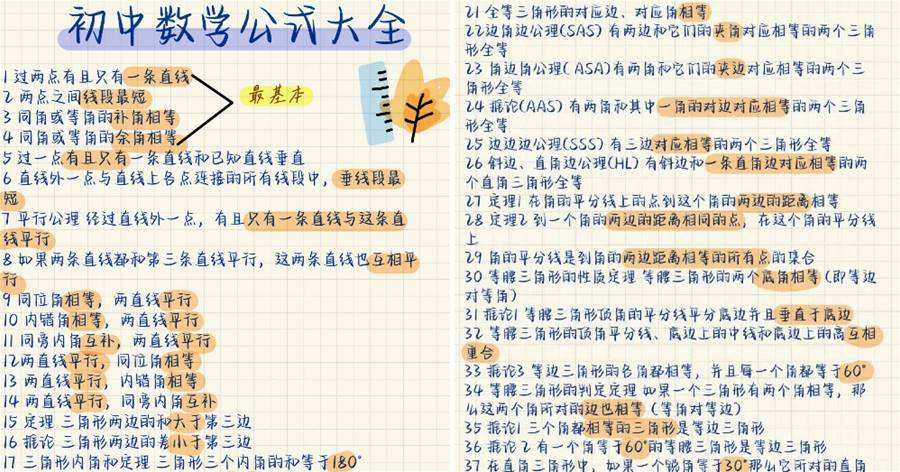 初中数学公式大全
1 过两点有且只有一条直线
2 两点之间线段最短
3 同角或等角的补角相等
4 同角或等角的余角相等
最基本
5 过一点有且只有一条直线和已知直线垂直
6 直线外一点与直线上各点连接的所有线段中，垂线段最
短
7 平行公理 经过直线外一点，有且只有一条直线与这条直
线平行
8 如果两条直线都和第三条直线平行，这两条直线也互相平
行
9 同位角相等，两直线平行
10 内错角相等，两直线平行
11 同旁内角互补，两直线平行
12两直线平行，同位角相等
13 两直线平行，内错角相等
14 两直线平行，同旁内角互补
15 定理 三角形两边的和大于第三边
16 推论 三角形两边的差小于第三边
17 三角形内角和定理 三角形三个内角的和等于180°
21 全等三角形的对应边、对应角相等
22边角边公理(SAS) 有两边和它们的夹角对应相等的两个三角
形全等
23 角边角公理( ASA)有两角和它们的夹边对应相等的两个三
角形全等
24 推论(AAS) 有两角和其中一角的对边对应相等的两个三角
形全等
25 边边边公理(SSS) 有三边对应相等的两个三角形全等
26 斜边、直角边公理(HL) 有斜边和一条直角边对应相等的两
个直角三角形全等
27 定理1 在角的平分线上的点到这个角的两边的距离相等
28 定理2 到一个角的两边的距离相同的点，在这个角的平分线
上
29 角的平分线是到角的两边距离相等的所有点的集合
30 等腰三角形的性质定理 等腰三角形的两个底角相等（即等边
对等角）
31 推论1 等腰三角形顶角的平分线平分底边并且垂直于底边
32 等腰三角形的顶角平分线、底边上的中线和底边上的高互相
重合
33 推论3 等边三角形的各角都相等，并且每一个角都等于60°
34 等腰三角形的判定定理 如果一个三角形有两个角相等，那
么这两个角所对的边也相等（等角对等边）
35 推论1 三个角都相等的三角形是等边三角形
36 推论 2 有一个角等于60°的等腰三角形是等边三角形
37 在直角三角形中，如果一个锐角等于30°那么它所对的直角